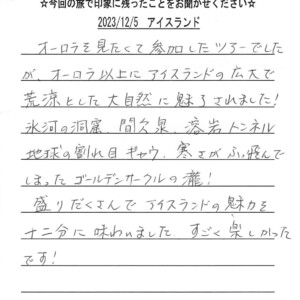 ☆今回の旅で印象に残ったことをお聞かせください☆
2023/12/5　アイスランド
オーロラを見たくて参加したツアーでした
が、オーロラ以上にアイスランドの広大で
荒涼とした大自然に魅了されました!
氷河の洞窟、間欠泉、溶岩トンネル
地球の割れ目ギャウ、寒さがふっ飛んで
しまったゴールデンサークルの滝!
盛りだくさんでアイスランドの魅力を
十二分に味わいました。すごく楽しかった
です!